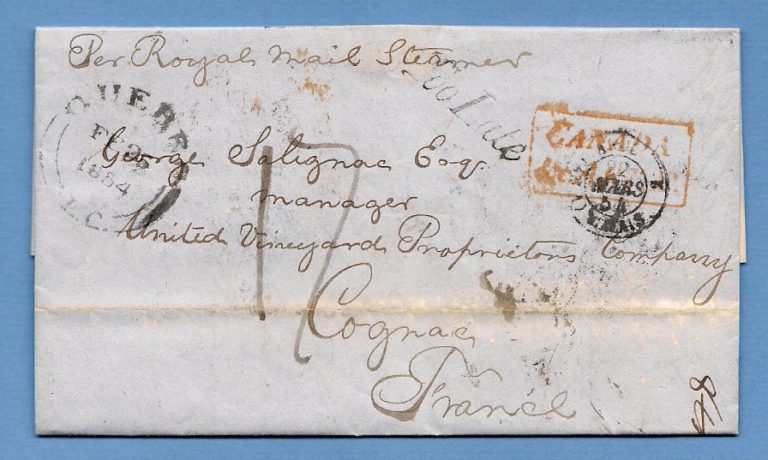 Per Royal Mail Steamer
Too Late
QUEBEC
FE
1854
L.C.
CANADA
MARS
54
CALAIS
George Salignac Esqr
Manager
United Vineyard Proprietors Company
Cognac
France
17